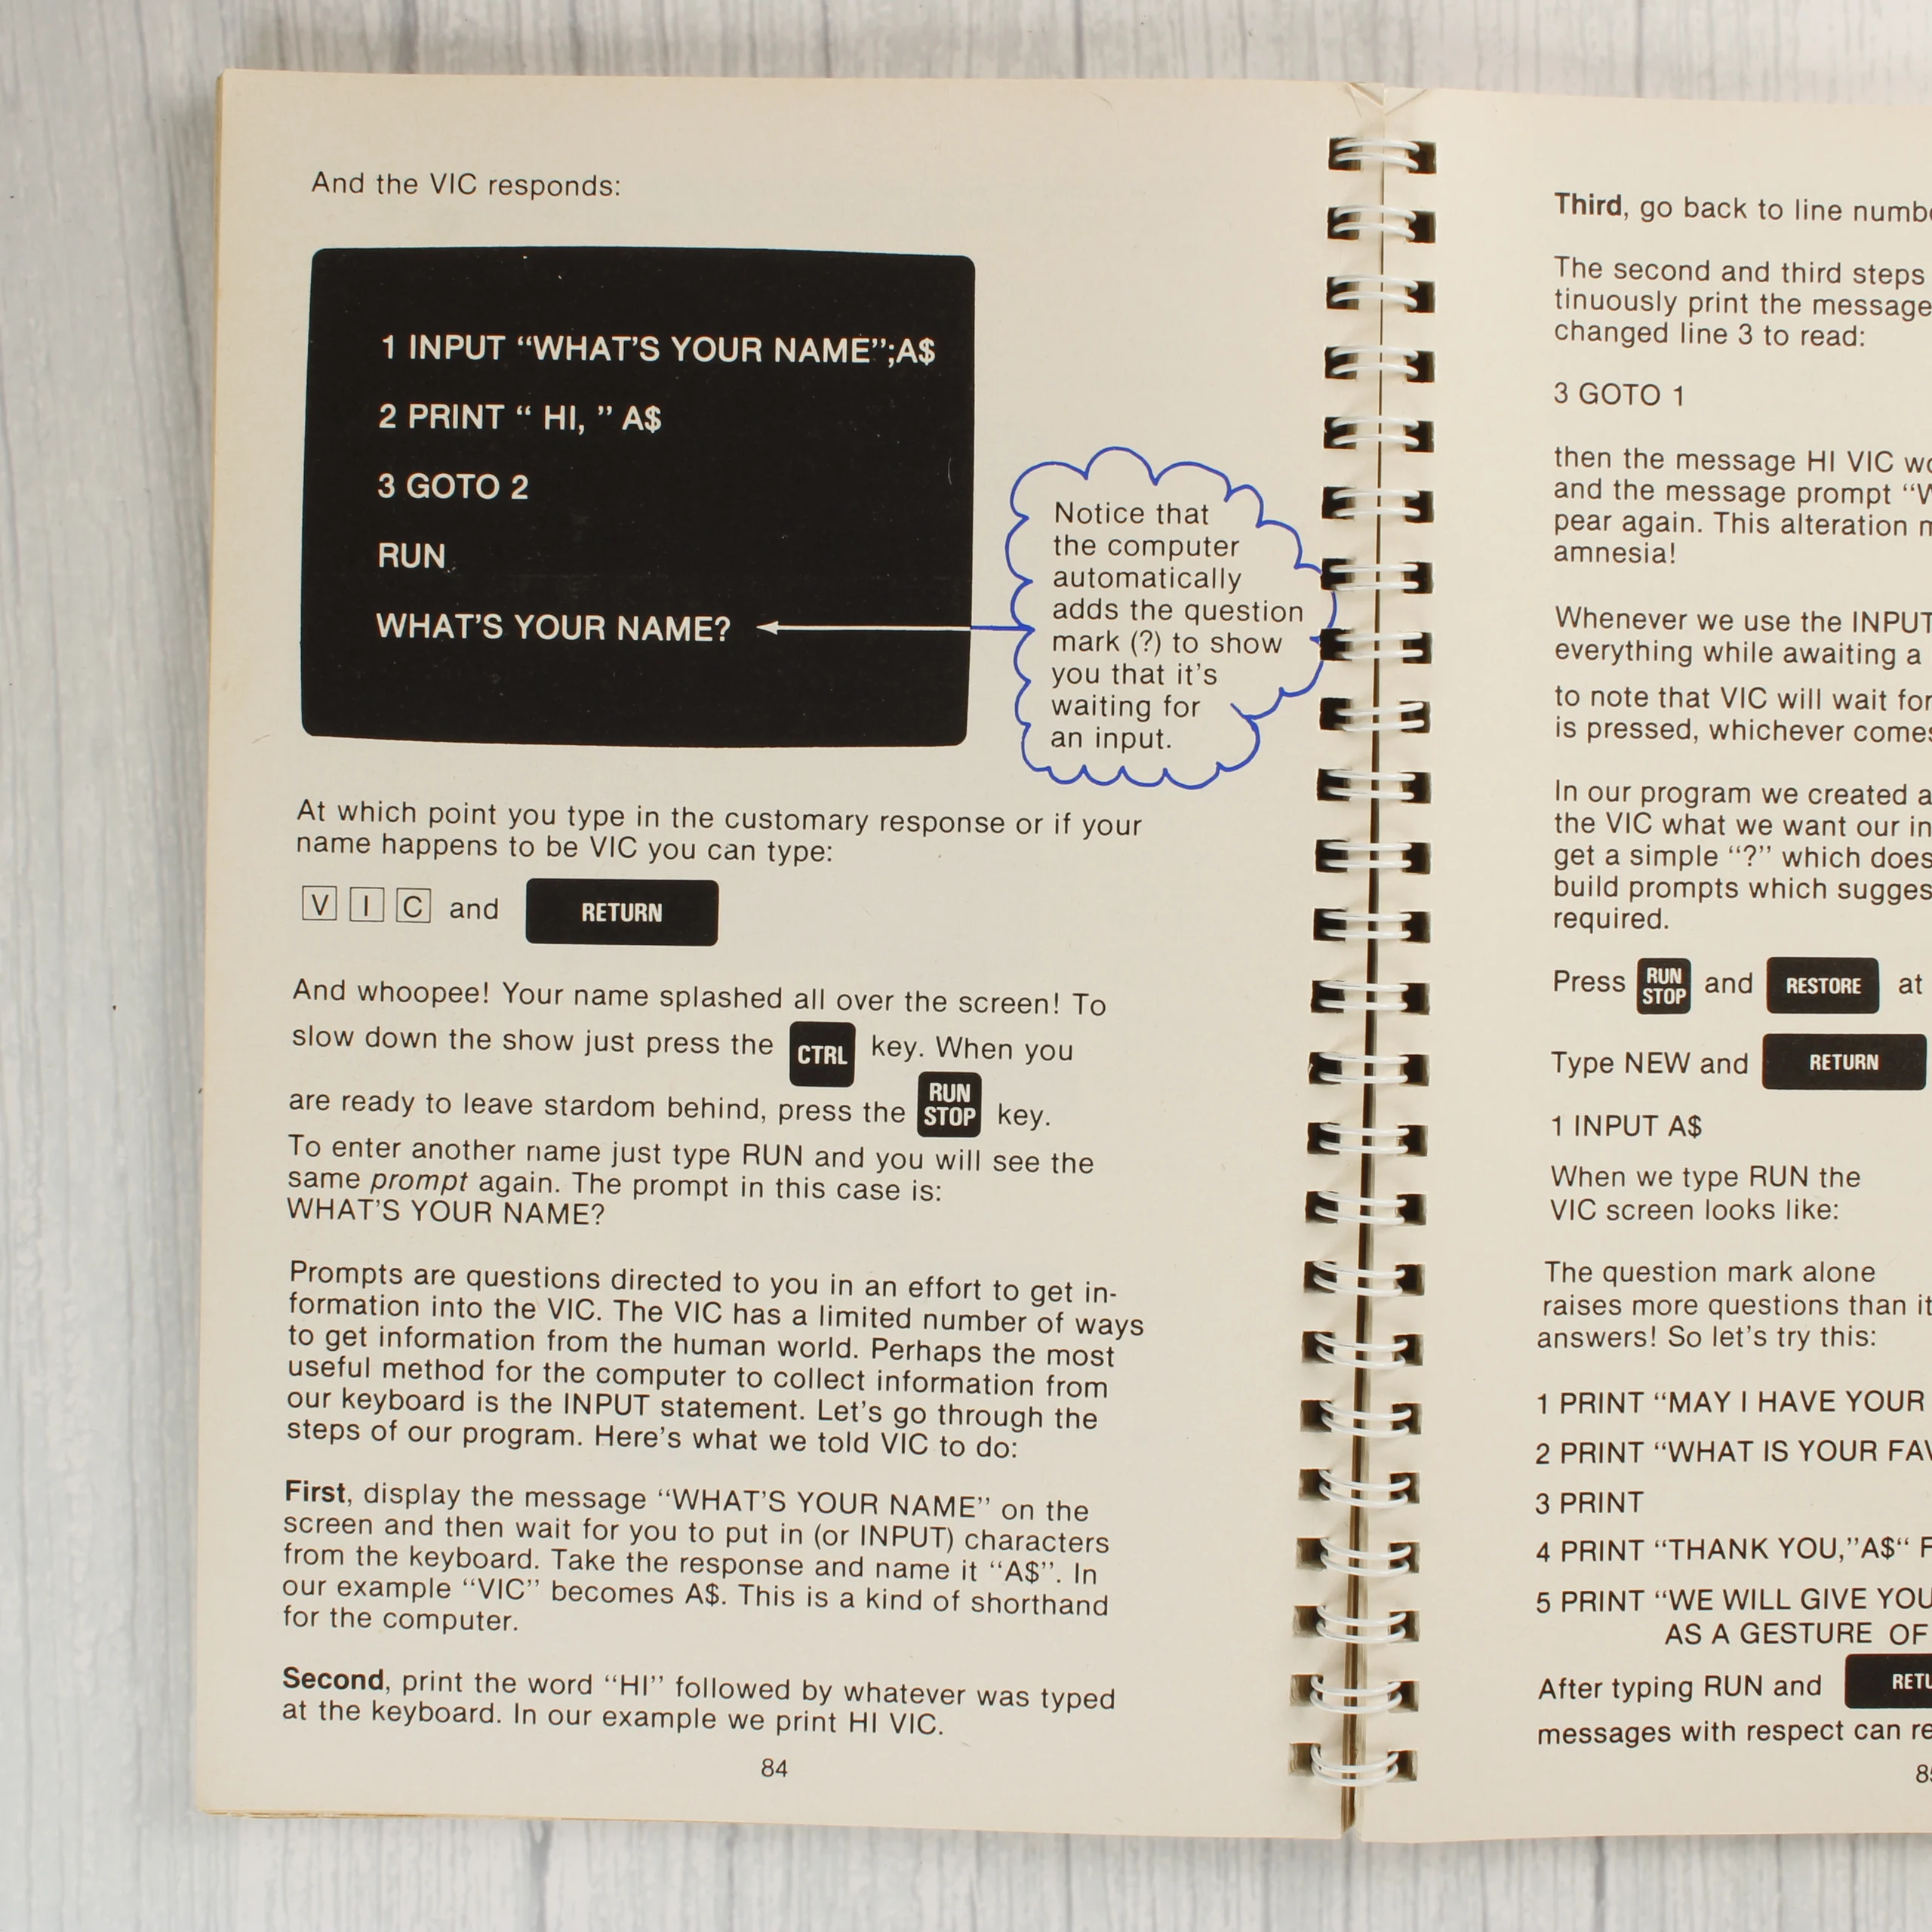 And the VIC responds:
1 INPUT “WHAT’S YOUR NAME”;A$
2 PRINT “ HI, ” A$
3 GOTO 2
RUN
WHAT’S YOUR NAME?
Notice that
the computer
automatically
adds the question
mark (?) to show
you that it’s
waiting for
an input.
At which point you type in the customary response or if your
name happens to be VIC you can type:
V I C and RETURN
And whoopee! Your name splashed all over the screen! To
slow down the show just press the CTRL key. When you
are ready to leave stardom behind, press the RUN STOP key.
To enter another name just type RUN and you will see the
same prompt again. The prompt in this case is:
WHAT’S YOUR NAME?
Prompts are questions directed to you in an effort to get in-
formation into the VIC. The VIC has a limited number of ways
to get information from the human world. Perhaps the most
useful method for the computer to collect information from
our keyboard is the INPUT statement. Let’s go through the
steps of our program. Here’s what we told VIC to do:
First, display the message “WHAT’S YOUR NAME” on the
screen and then wait for you to put in (or INPUT) characters
from the keyboard. Take the response and name it “A$”. In
our example “VIC” becomes A$. This is a kind of shorthand
for the computer.
Second, print the word “HI” followed by whatever was typed
at the keyboard. In our example we print HI VIC.
84
Third, go back to line
The second and third steps
tinuously print the message
changed line 3 to read:
3 GOTO 1
then the message HI VIC
and the message prompt
pear again. This alteration
amnesia!
Whenever we use the INPUT
everything while awaiting a
to note that VIC will wait for
is pressed, whichever comes
In our program we created a
the VIC what we want our
get a simple “?” which does
build prompts which
required.
Press RUN STOP and RESTORE at
Type NEW and RETURN
1 INPUT A$
When we type RUN the
VIC screen looks like:
The question mark alone
raises more questions than it
answers! So let’s try this:
1 PRINT “MAY I HAVE YOUR
2 PRINT “WHAT IS YOUR
3 PRINT
4 PRINT “THANK YOU,”A$“
5 PRINT “WE WILL GIVE
AS A GESTURE OF
After typing RUN and
messages with respect can